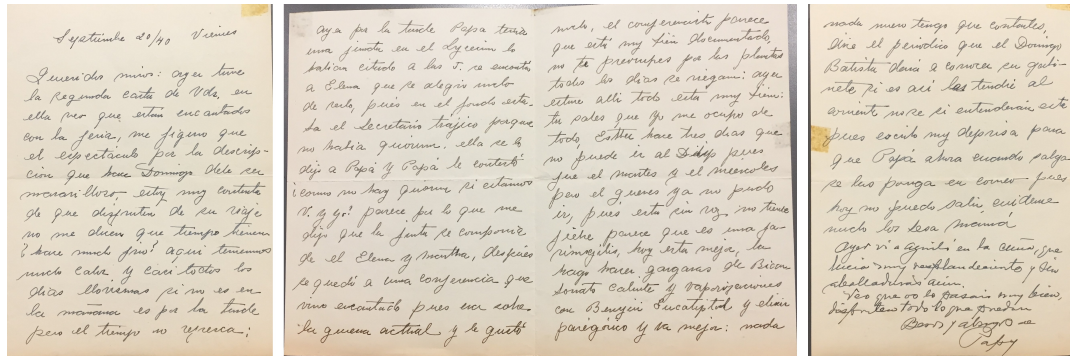 Septiembre 20/40 Viernes
Queridos mios: ayer tuve
la segunda carta de Vds, en
ella veo que están encantados
con la feria, me figuro que
el espectáculo por la descrip-
cion que hace Domingo debe ser
maravilloso, estoy muy contenta
de que disfruten de su viaje
no me dicen que tiempo tienen
¿hace mucho frio? aqui tenemos
mucho calor y casi todos los
dias lloviemas si no es en
la mañana es por la tarde
pero el tiempo no refresca;
ayer por la tarde Papá tenia
una junta en el Lyceum lo
habian citado a las 5, se encontró
a Elena que se alegró mucho
de verlo, pués en el fondo esta-
ba el Secretario trájico porque
no habia quorum: ella se lo
dijo a Papá y Papá le contestó
¿como no hay quorum si estamos
V. y yo? parece, por lo que me
dijo que la junta se componia
de el Elena y Martha, después
se quedó a una conferencia que
vino encantado pues era sobre
la guerra actual y le gustó
mucho, el conferencista parece
que está muy bien documentado,
no te preocupes por las plantas
todos los dias se riegan: ayer
estuve alli todo esta muy bien:
tu sabes que yo me ocupo de
todo, Esther hace tres dias que
no puede ir al pues
fue el martes y el miercoles
pero el jueves ya no pudo
ir, pues esta sin voz, no tiene
fiebre parece que es una fa-
ringitis, hoy esta mejor, la
hago hacer gargaras de Bicar
bonato caliente y vaporizaciones
con Benjui Eucaliptol y elixir
paregórico y va mejor: nada
nada nuevo tengo que contarles,
dice el periodico que el Domingo
Batista dará a conocer su gabi-
nete si es asi las tendré al
corriente no se si entenderán esto
pues escribo muy deprisa para
que Papá ahora cuando salga
se las ponga en correo pues
hoy no puedo salir cuidense
mucho los besa Mamá
Ayer vi a en la cena, que
lucia muy resplandeciente y bien
aun.
Veo que lo pasais muy bien,
disfruten todo lo que puedan
Besos y abrazos de
Papy